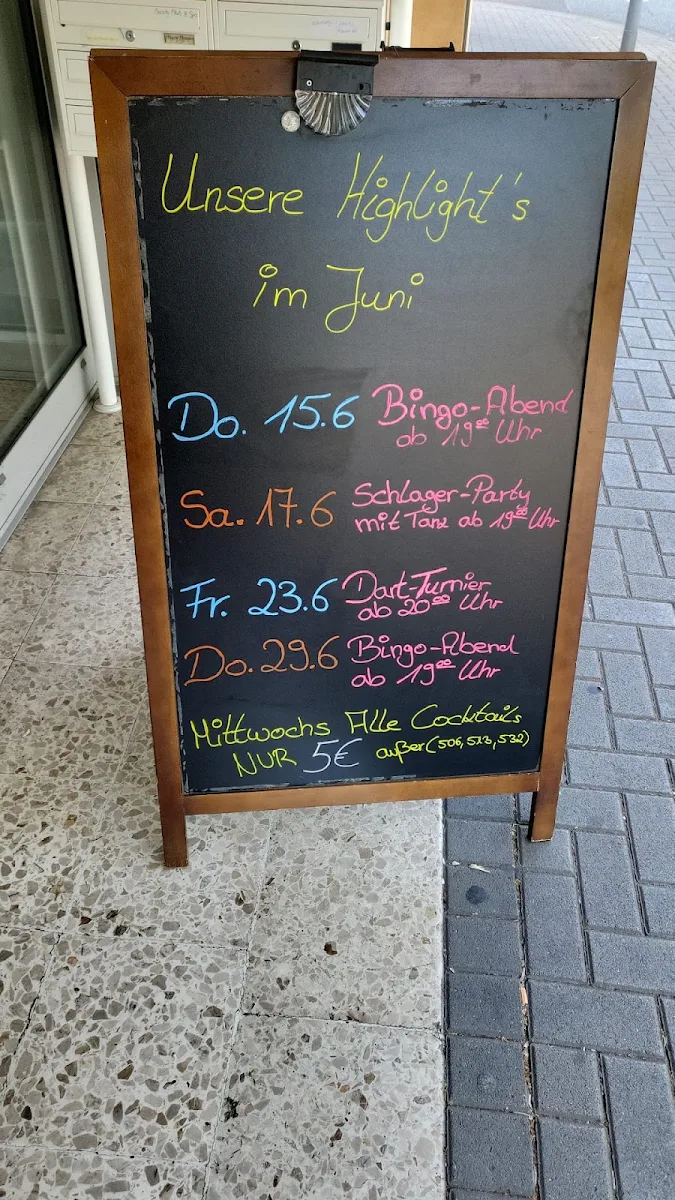 Unsere Highlight's
im Juni
Do. 15.6 Bingo-Abend
ab 19⁰⁰ Uhr
Sa. 17.6 Schlager-Party
mit Tanz ab 19⁰⁰ Uhr
Fr. 23.6 Dart-Turnier
ab 20⁰⁰ Uhr
Do. 29.6 Bingo-Abend
ab 19⁰⁰ Uhr
Mittwochs Alle Cocktails
NUR 5€ außer (506, 513, 532)